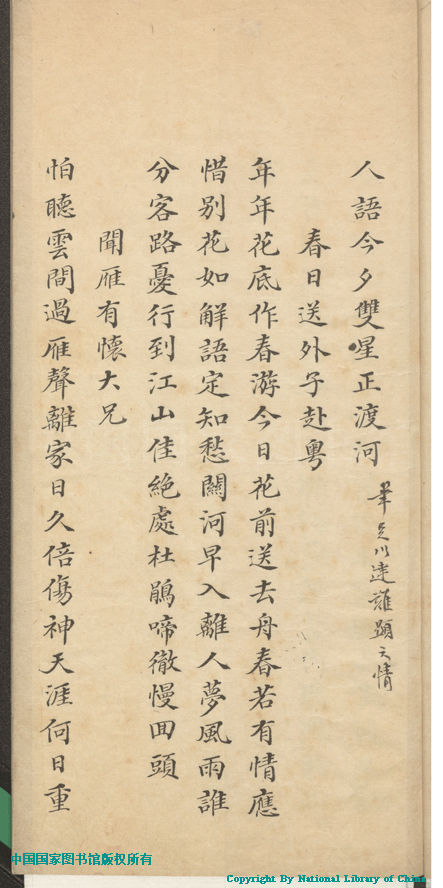 人語今夕雙星正渡河
筆足以達難顯之情
春日送外子赴粤
年年花底作春游今日花前送去舟春若有情應
惜别花如解語定知愁關河早入離人夢風雨誰
分客路憂行到江山佳絶處杜鵑啼徹慢回頭
聞雁有懷大兄
怕聽雲間過雁聲離家日久倍傷神天涯何日重
中国国家图书馆版权所有
Copyright By National Library of China